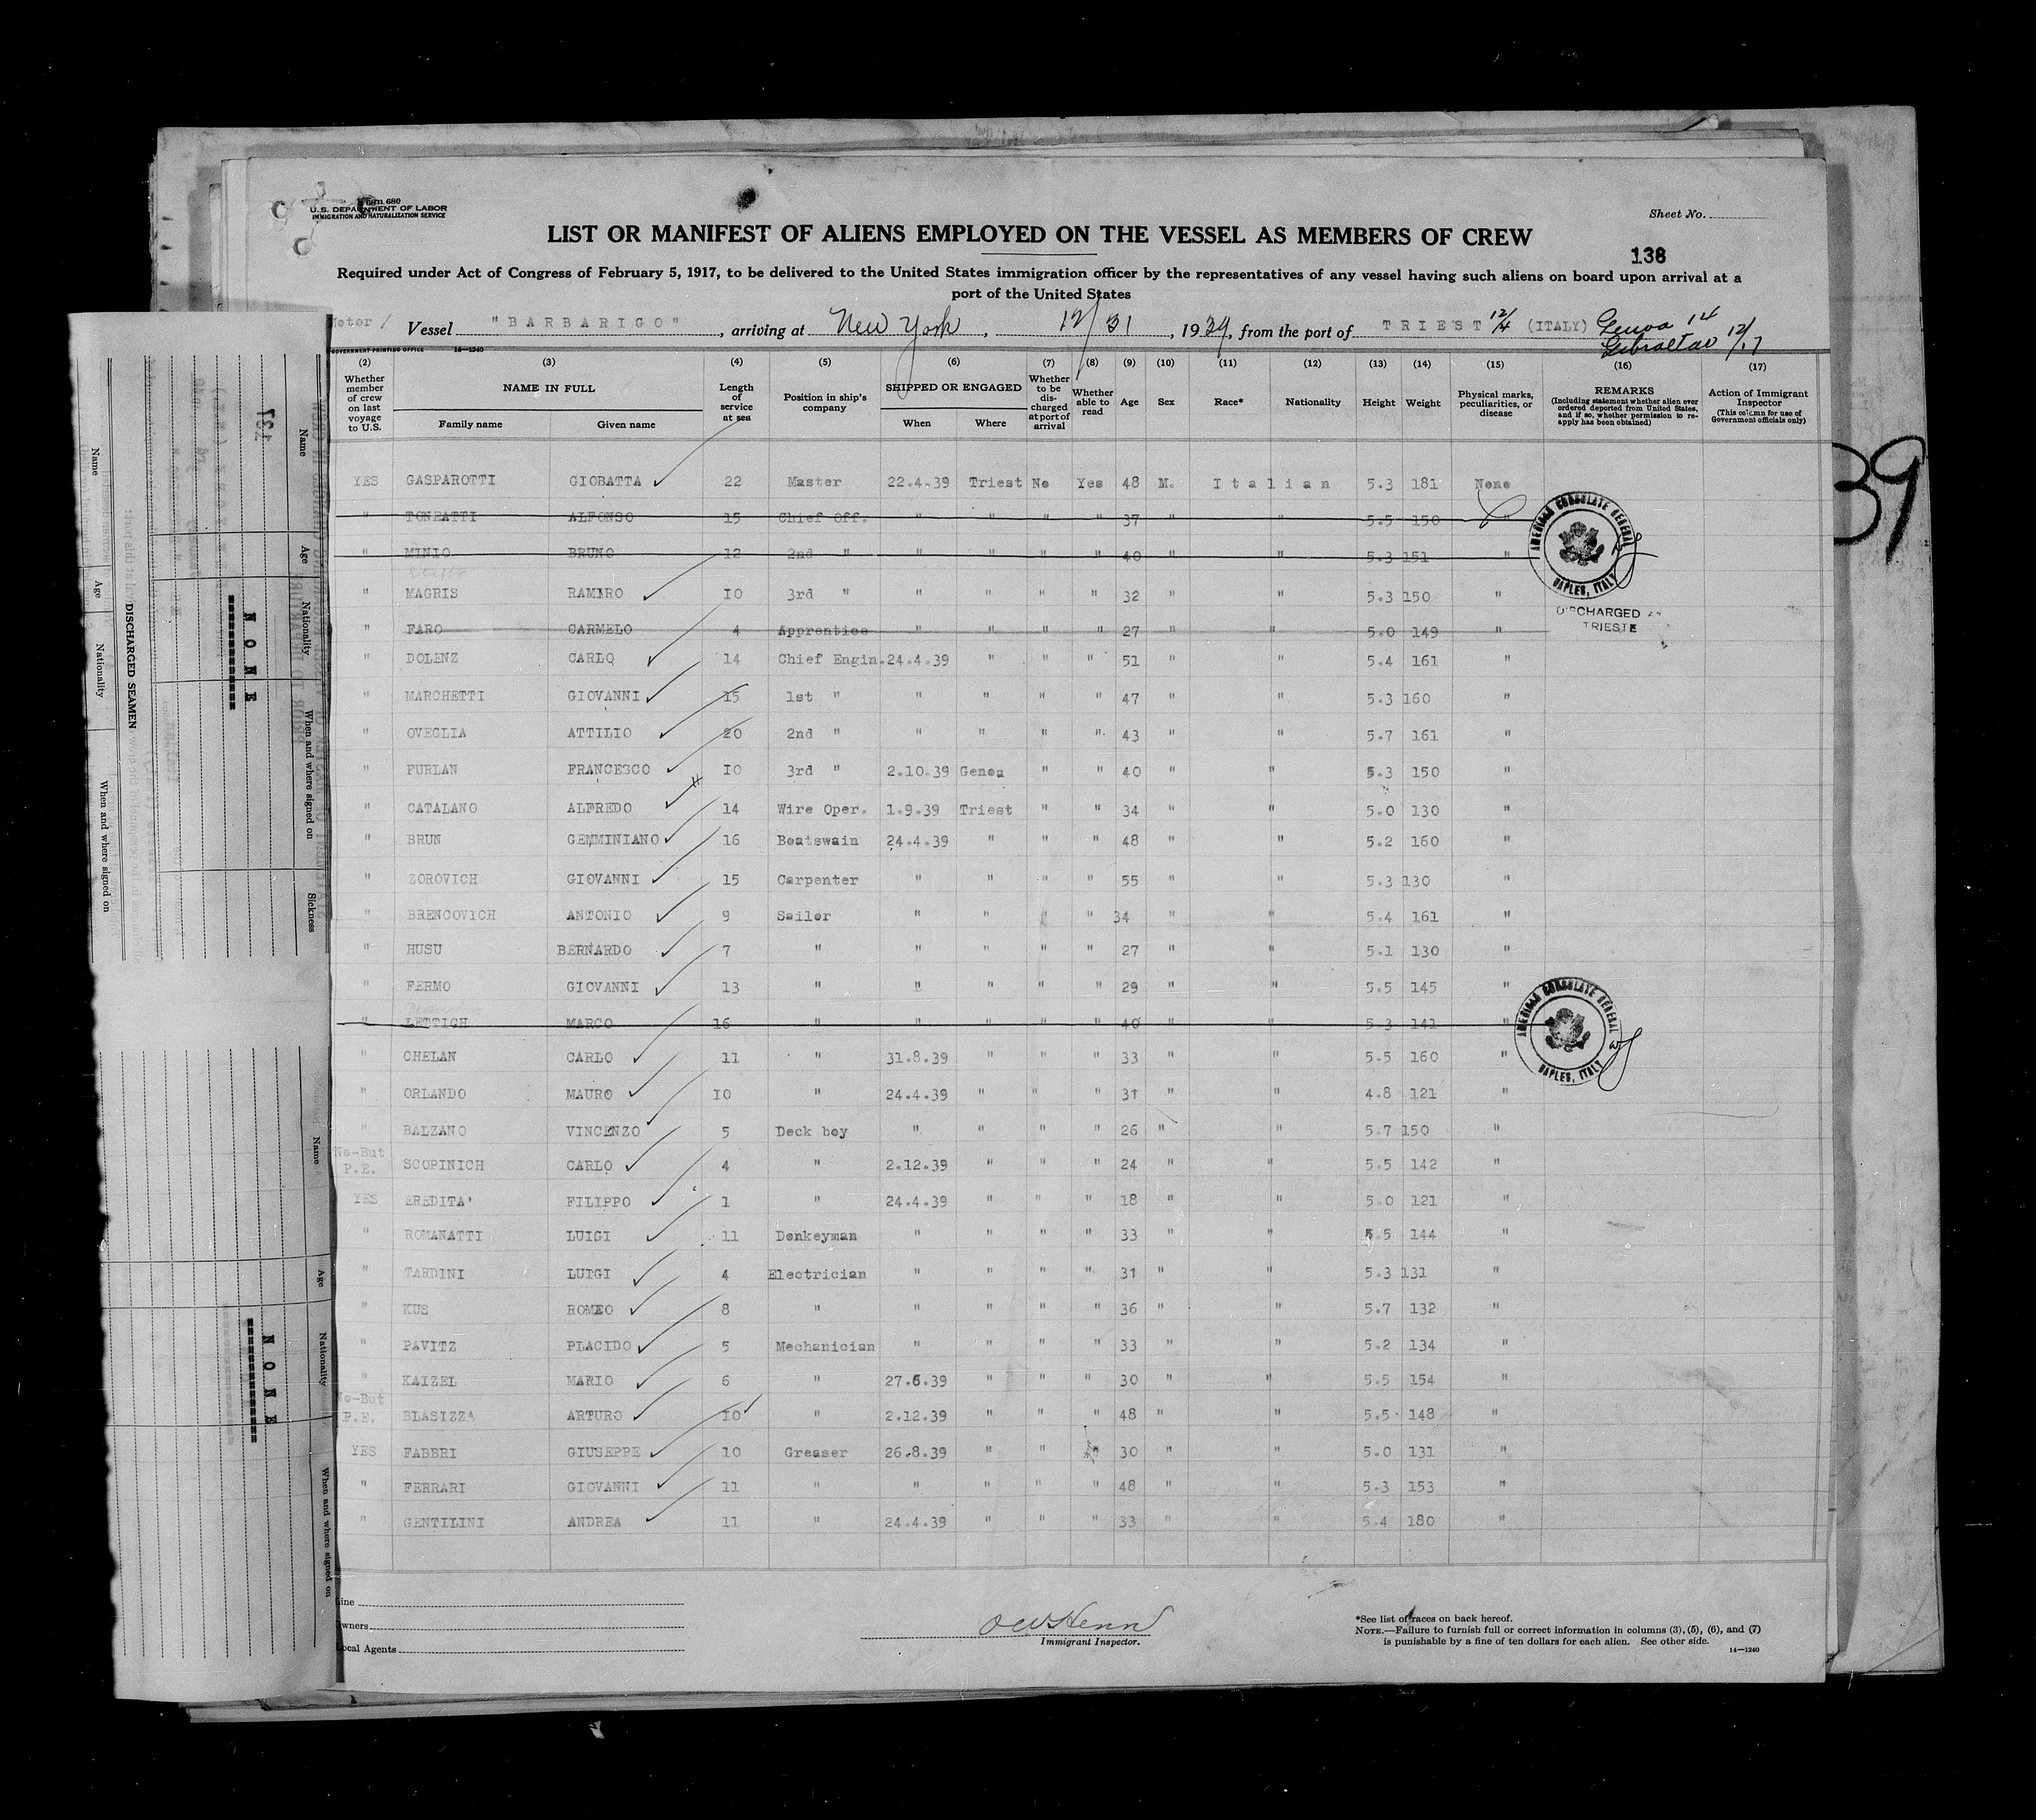 Form 680
U.S. DEPARTMENT OF LABOR
IMMIGRATION AND NATURALIZATION SERVICE
Sheet No.
LIST OR MANIFEST OF ALIENS EMPLOYED ON THE VESSEL AS MEMBERS OF CREW
138
Required under Act of Congress of February 5, 1917, to be delivered to the United States immigration officer by the representatives of any vessel having such aliens on board upon arrival at a
port of the United States
Motor / Vessel "BARBARIGO", arriving at New York, 12/31, 1939, from the port of TRIEST 12/4 (ITALY) Genoa 14
Gibraltar 12/17
GOVERNMENT PRINTING OFFICE 14—1240
(2) (3) (4) (5) (6) (7) (8) (9) (10) (11) (12) (13) (14) (15) (16) (17)
Whether member of crew on last voyage to U.S. NAME IN FULL Family name Given name Length of service at sea Position in ship's company SHIPPED OR ENGAGED When Where Whether to be discharged at port of arrival Whether able to read Age Sex Race* Nationality Height Weight Physical marks, peculiarities, or disease REMARKS (Including statement whether alien ever ordered deported from United States, and if so, whether permission to re-apply has been obtained) Action of Immigrant Inspector (This column for use of Government officials only)
YES GASPAROTTI GIOBATTA 22 Master 22.4.39 Triest No Yes 48 M. Italian 5.3 181 None
" TONEATTI ALFONSO 15 Chief Off. " " " " 37 " " 5.5 150 "
" MINIO BRUNO 12 2nd " " " " " 40 " " 5.3 151 "
" MAGRIS RAMIRO 10 3rd " " " " " 32 " " 5.3 150 "
" FARO CARMELO 4 Apprentice " " " " 27 " " 5.0 149 "
" DOLENZ CARLO 14 Chief Engin. 24.4.39 " " " 51 " " 5.4 161 "
" MARCHETTI GIOVANNI 15 1st " " " " " 47 " " 5.3 160 "
" OVEGLIA ATTILIO 20 2nd " " " " " 43 " " 5.7 161 "
" FURLAN FRANCESCO 10 3rd " 2.10.39 Genoa " " 40 " " 5.3 150 "
" CATALANO ALFREDO 14 Wire Oper. 1.9.39 Triest " " 34 " " 5.0 130 "
" BRUN GEMMINIANO 16 Boatswain 24.4.39 " " " 48 " " 5.2 160 "
" ZOROVICH GIOVANNI 15 Carpenter " " " " 55 " " 5.3 130 "
" BRENCOVICH ANTONIO 9 Sailor " " " " 34 " " 5.4 161 "
" HUSU BERNARDO 7 " " " " " 27 " " 5.1 130 "
" FERMO GIOVANNI 13 " " " " " 29 " " 5.5 145 "
" LETTICH MARCO 16 " " " " " 40 " " 5.3 141 "
" CHELAN CARLO 11 " 31.8.39 " " " 33 " " 5.5 160 "
" ORLANDO MAURO 10 " 24.4.39 " " " 31 " " 4.8 121 "
" BALZANO VINCENZO 5 Deck boy " " " " 26 " " 5.7 150 "
No-But P.E. SCOPINICH CARLO 4 " 2.12.39 " " " 24 " " 5.5 142 "
YES EREDITA' FILIPPO 1 " 24.4.39 " " " 18 " " 5.0 121 "
" ROMANATTI LUIGI 11 Donkeyman " " " " 33 " " 5.5 144 "
" TARDINI LUIGI 4 Electrician " " " " 31 " " 5.3 131 "
" KUS ROMEO 8 " " " " " 36 " " 5.7 132 "
" PAVITZ PLACIDO 5 Mechanician " " " " 33 " " 5.2 134 "
" KAIZEL MARIO 6 " 27.6.39 " " " 30 " " 5.5 154 "
No-But P.E. BLASIZZA ARTURO 10 " 2.12.39 " " " 48 " " 5.5 148 "
YES FABBRI GIUSEPPE 10 Greaser 26.8.39 " " " 30 " " 5.0 131 "
" FERRARI GIOVANNI 11 " " " " " 48 " " 5.3 153 "
" GENTILINI ANDREA 11 " 24.4.39 " " " 33 " " 5.4 180 "
AMERICAN CONSULATE GENERAL
NAPLES, ITALY
DISCHARGED AT
TRIESTE
AMERICAN CONSULATE GENERAL
NAPLES, ITALY
39
Line
Owners
Local Agents
Immigrant Inspector.
*See list of races on back hereof.
NOTE.—Failure to furnish full or correct information in columns (3), (5), (6), and (7)
is punishable by a fine of ten dollars for each alien. See other side.
14—1240
137
Name Age Nationality When and where signed on Sickness
NONE
DISCHARGED SEAMEN
Name Age Nationality When and where signed on
Name Age Nationality When and where signed on
NONE